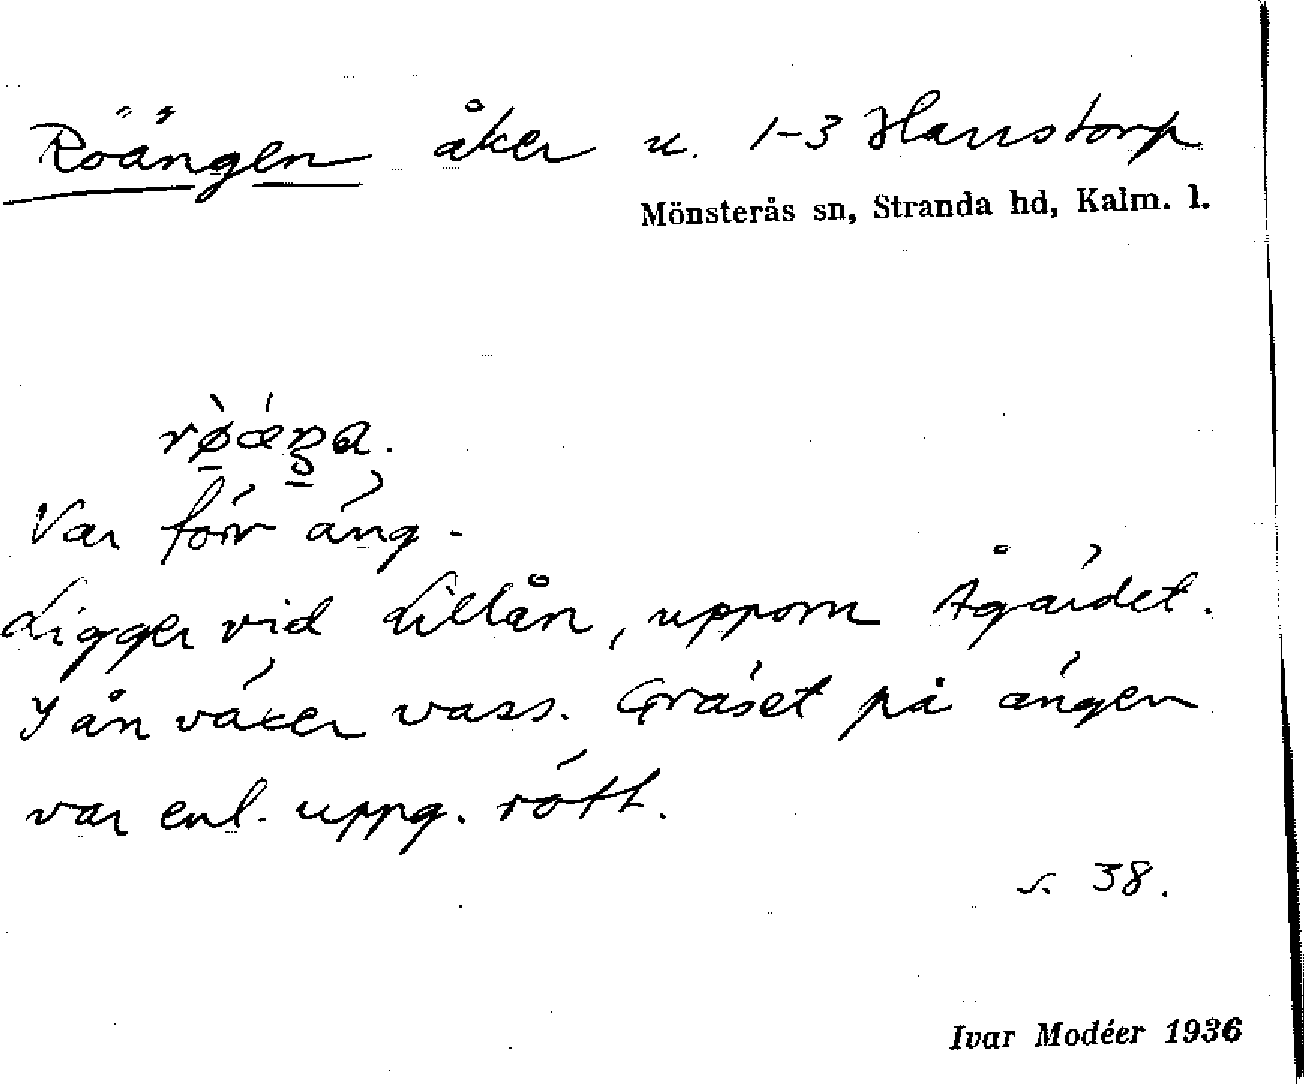 Röängen åker u. 1-3 Harrstorp
Mönsterås sn, Stranda hd, Kalm. l.
Var förr äng.
Ligger vid Lillån, uppom Ågärdet.
I ån växer vass. Gräset på ängen
var enl. uppg. rött.
s. 38.
Ivar Modéer 1936